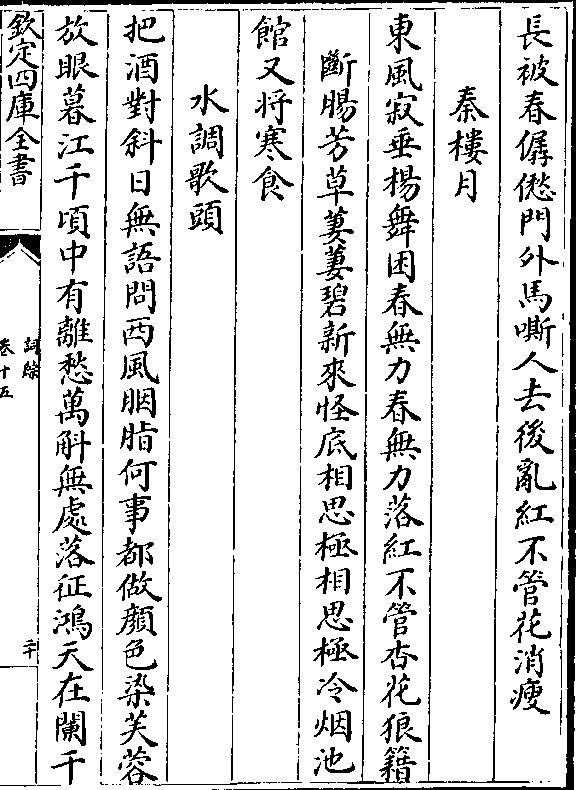 長被春僝僽門外馬嘶人去後亂紅不管花消瘦
秦樓月
東風寂垂楊舞困春無力春無力落紅不管杏花狼籍
斷腸芳草萋萋碧新來怪底相思極相思極冷烟池
館又將寒食
水調歌頭
把酒對斜日無語問西風胭脂何事都做顔色染芙蓉
放眼暮江千頃中有離愁萬斛無處落征鴻天在闌干
欽定四庫全書
詞綜
卷十五
二十